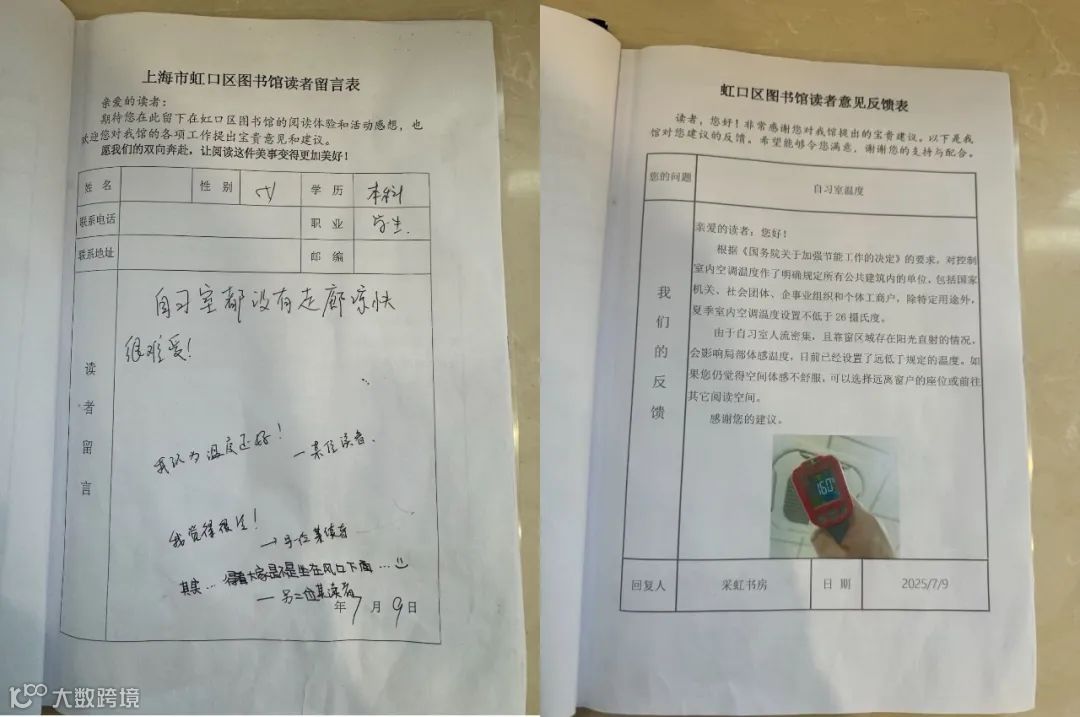 上海市虹口区图书馆读者留言表
亲爱的读者：
期待您在此留下在虹口区图书馆的阅读体验和活动感想，也
欢迎您对我馆的各项工作提出宝贵意见和建议。
愿我们的双向奔赴，让阅读这件美事变得更加美好！
姓 名 性 别 女 学 历 本科
联系电话 职 业 学生.
联系地址 邮 编
读者留言
自习室都没有走廊凉快
很难受！
我认为温度还好！
—某位读者.
我觉得很冷！
→另一位某读者
其实… 得看大家是不是坐在风口下面…
—另二位某读者
年7月9日
虹口区图书馆读者意见反馈表
读者，您好！非常感谢您对我馆提出的宝贵建议。以下是我
馆对您建议的反馈。希望能够令您满意，谢谢您的支持与配合。
您的问题 自习室温度
我们的反馈
亲爱的读者：您好！
根据《国务院关于加强节能工作的决定》的要求，对控制
室内空调温度作了明确规定所有公共建筑内的单位，包括国家
机关、社会团体、企事业组织和个体工商户，除特定用途外，
夏季室内空调温度设置不低于 26 摄氏度。
由于自习室人流密集，且靠窗区域存在阳光直射的情况，
会影响局部体感温度，目前已经设置了远低于规定的温度。如
果您仍觉得空间体感不舒服，可以选择远离窗户的座位或前往
其它阅读空间。
感谢您的建议。
160
回复人 采虹书房 日 期 2025/7/9
大数跨境